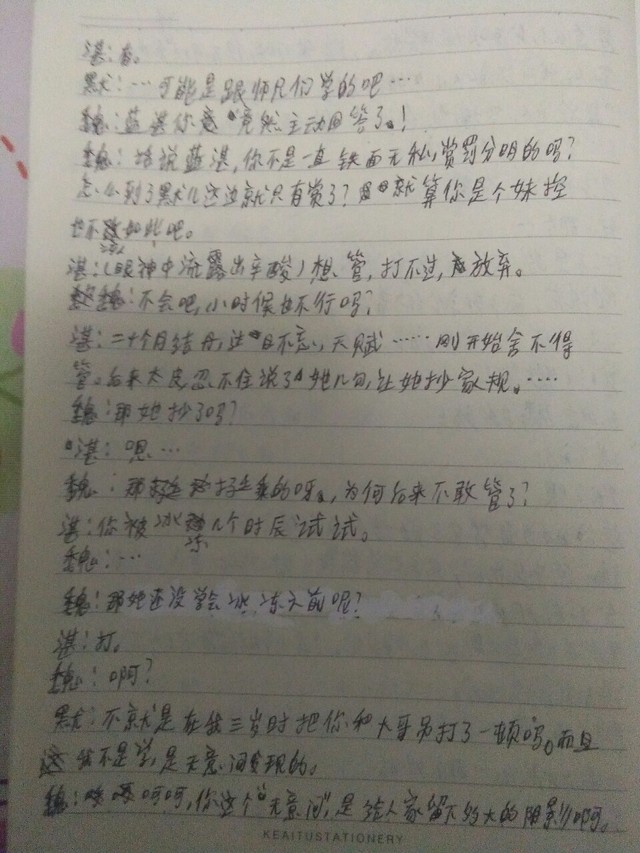 湛：有。
默：…可能是跟师兄们学的吧…
魏：蓝湛你竟然主动回答了！
魏：话说蓝湛，你不是一直铁面无私，赏罚分明的吗？
怎么到了默儿这边就只有赏了？就算你是个妹控
也不该如此吧。
湛：（眼神中流露出辛酸）想管，打不过，放弃。
魏：不会吧，小时候也不行吗？
湛：二十个月结丹，过目不忘，天赋……刚开始舍不得
管。后来太皮忍不住说了她几句，让她抄家规。…
魏：那她抄了吗？
湛：嗯…
魏：那挺乖的呀，为何后来不敢管了？
湛：你被冰冻几个时辰试试。
魏：…
魏：那她还没学会冰冻之前呢？
湛：打。
魏：啊？
默：不就是在我三岁时把你和大哥吊打了一顿吗。而且
我不是，是无意间发现的。
魏：呵呵，你这个“无意间”，是给人家留下多大的阴影啊。
KEAITUSTATIONERY